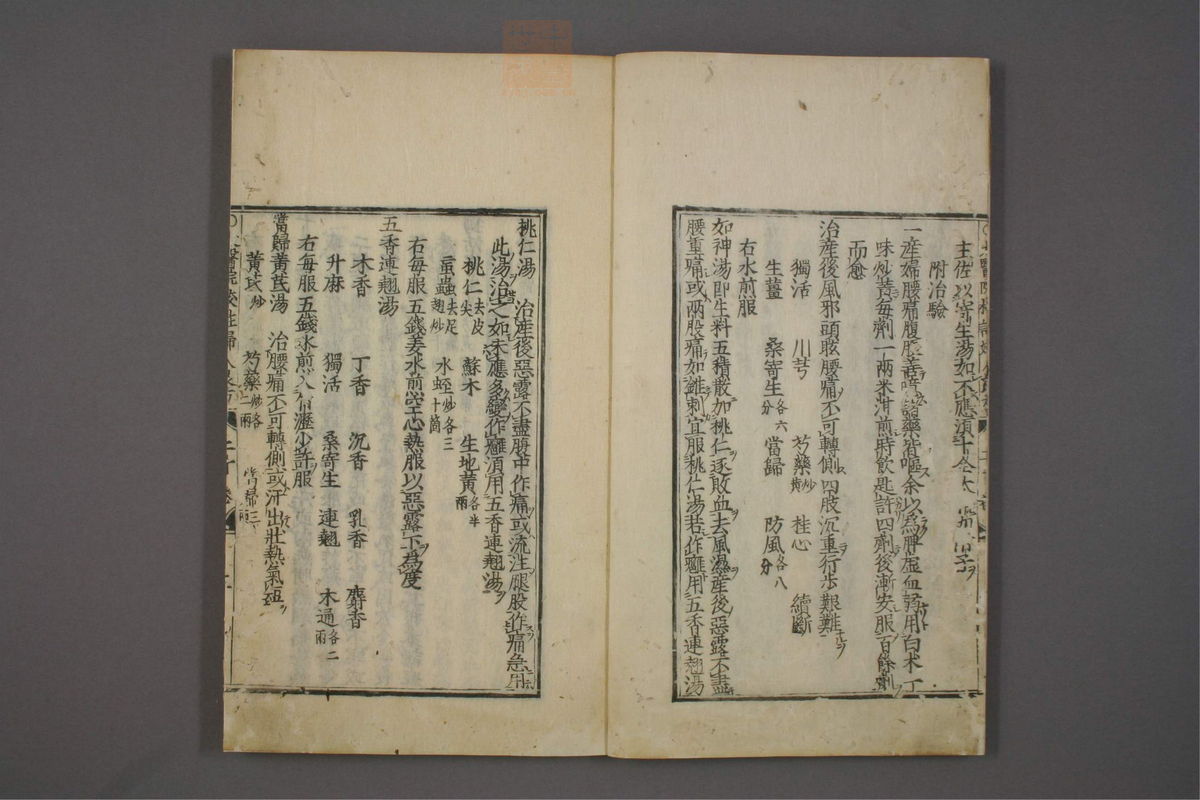 主佐以寄生湯如不應須十全大
附治驗
一產婦腰痛腹脹善噫諸藥皆嘔余以為脾虛血弱用白术一
味炒黃每劑一兩米泔煎時飲匙許四劑後漸安服百餘劑
而愈
治產後風邪頭眩腰痛不可轉側四肢沉重行步艱難
獨活 川芎 芍藥炒黃 桂心 續斷
生薑 桑寄生各六分 當歸 防風各八分
右水煎服
如神湯即生料五積散加桃仁逐敗血去風濕產後惡露不盡
腰重痛或兩股痛如錐刺宜服桃仁湯若作癰用五香連翹湯
桃仁湯 治產後惡露不盡腹中作痛或流注腿股作痛急用
此湯治之如未應多變作癰須用五香連翹湯
桃仁去皮尖 蘇木 生地黃各半兩
虻蟲去足翅炒 水蛭炒各三十箇
右每服五錢姜水煎空心熱服以惡露下為度
五香連翹湯
木香 丁香 沉香 乳香 麝香
升麻 獨活 桑寄生 連翹 木通各二兩
右每服五錢水煎入竹瀝少許服
當歸黃芪湯 治腰痛不可轉側或汗出壯熱氣短
黃芪炒 芍藥炒各二兩 當歸三兩